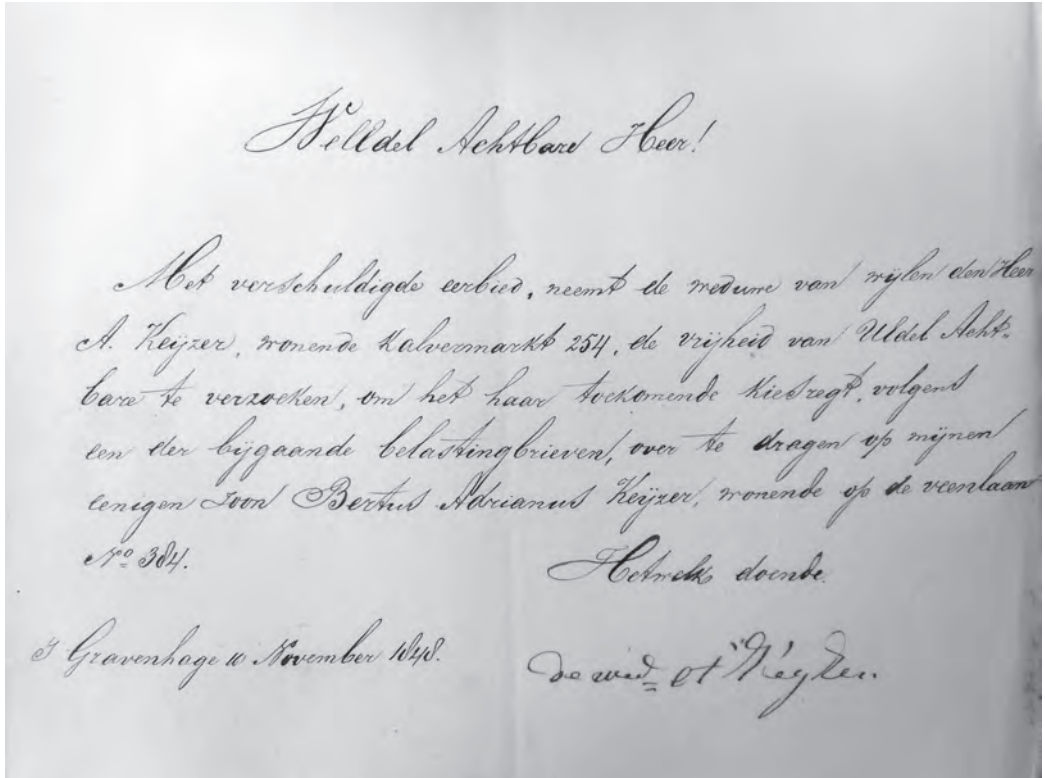 WelEdel Achtbare Heer!
Met verschuldigde eerbied, neemt de weduwe van wijlen den Heer
A. Keijzer, wonende Kalvermarkt 254, de vrijheid van UEdel Acht-
bare te verzoeken, om het haar toekomende Kiesregt, volgens
een der bijgaande belastingbrieven, over te dragen op mijnen
eenigen zoon Bertus Adrianus Keijzer, wonende op de veenlaan
No 384.
Hetwelk doende.
S Gravenhage 10 November 1848.
De wed= A Keyzer.